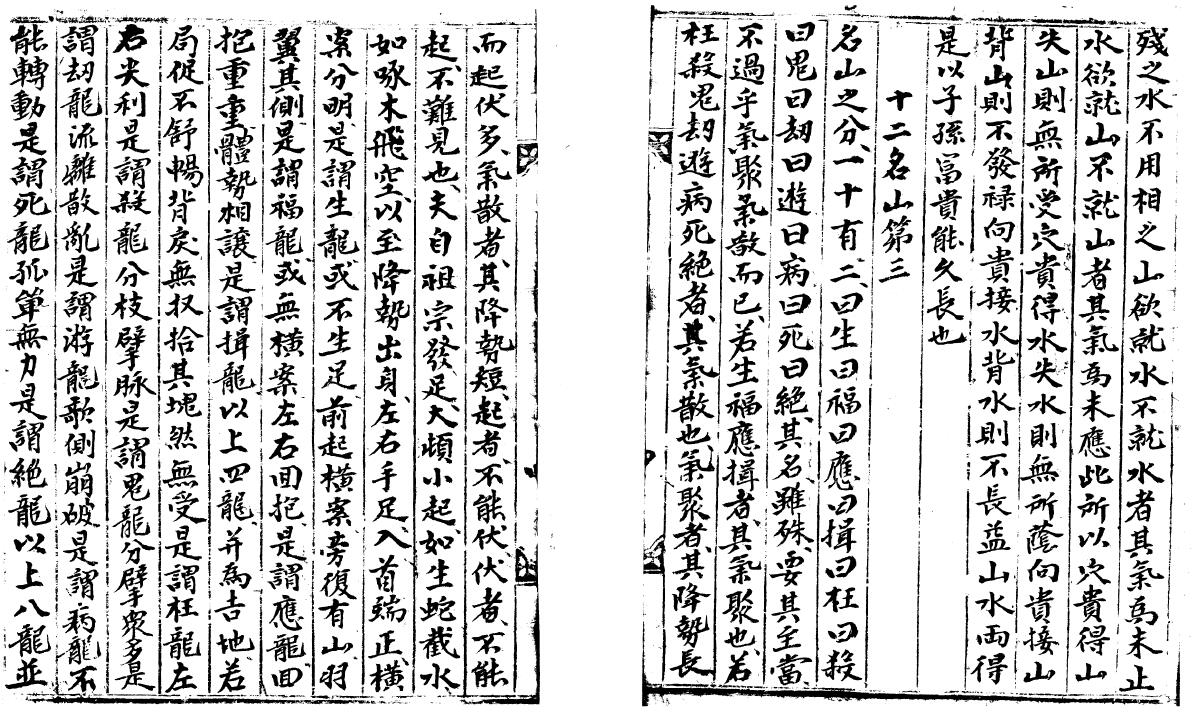 殘之水不用相之山欲就水不就水者其氣為未止
水欲就山不就山者其氣為未應此所以穴貴得山
失山則無所受穴貴得水失水則無所蔭向貴接山
背山則不發禄向貴接水背水則不長益山水両得
是以子孫冨貴能久長也
十二名山第三
名山之分一十有二曰生曰福曰應曰揖曰枉曰殺
曰鬼曰刼曰遊曰病曰死曰絶其名雖殊要其至當
不過乎氣聚氣散而已若生福應揖者其氣聚也若
枉殺鬼刼遊病死絶者其氣散也氣聚者其降勢長
而起伏多氣散者其降勢短起者不能伏伏者不能
起不難見也夫自祖宗發足大頓小起如生蛇截水
如啄木飛空以至降勢出身左右手足入首端正橫
案分明是謂生龍或不生足前起橫案旁復有山羽
翼其側是謂福龍或無橫案左右回抱是謂應龍回
抱重重體勢相讓是謂揖龍以上四龍并為吉地若
局促不舒暢背戾無扠拾其塊然無受是謂枉龍左
右尖利是謂殺龍分枝擘脉是謂鬼龍分擘衆多是
謂刼龍流離散亂是謂游龍欹側崩破是謂病龍不
能轉動是謂死龍孤單無力是謂絶龍以上八龍並